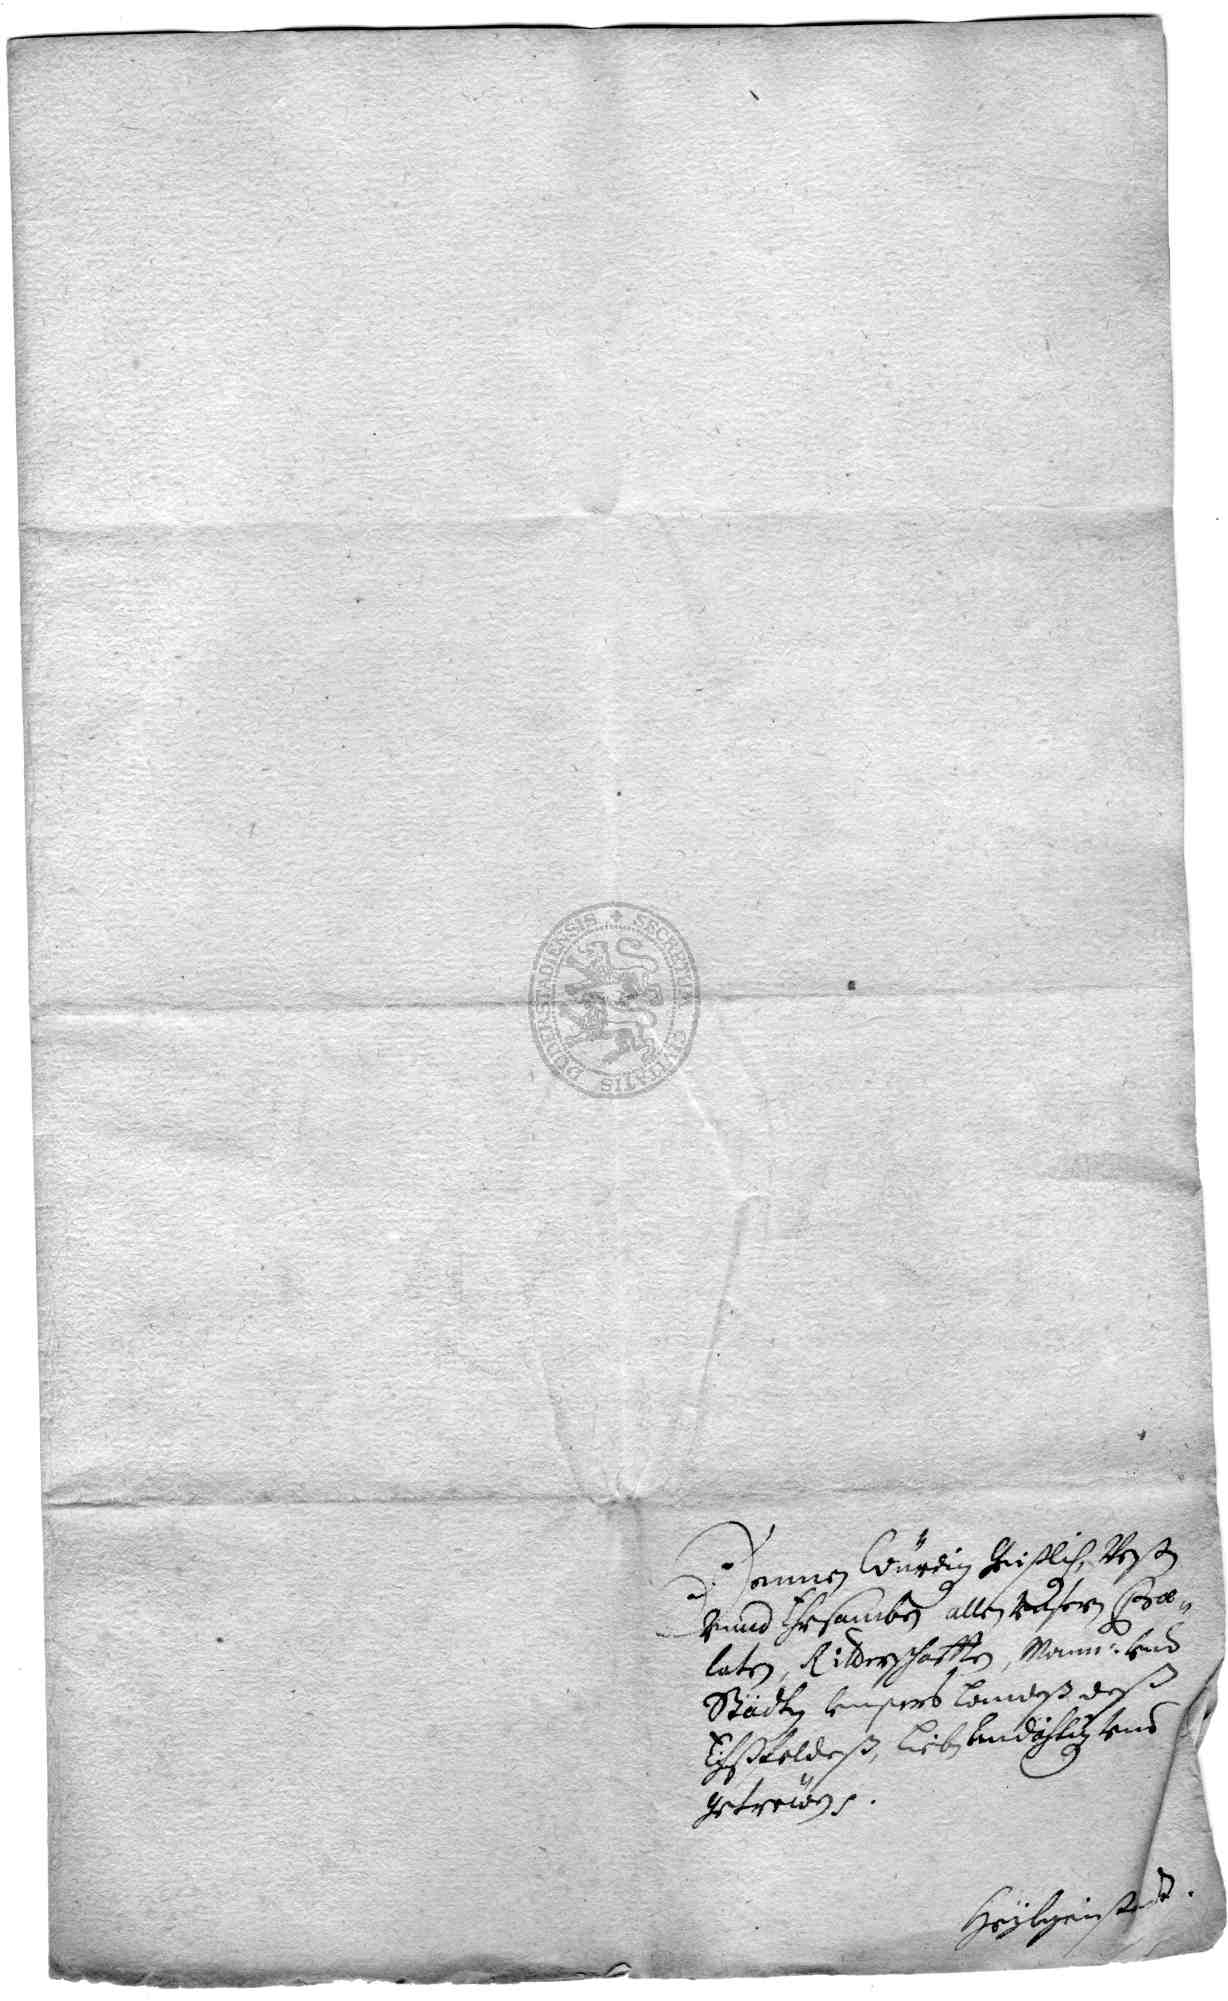 SECRETUM CIVITATIS DUDERSTADIENSIS
Dennen Würdig Geistlich, Vesten
vnnd Ehrsamben allen vnsern Præ-
laten, Ritterschafften, Mann: vnd
Städten vnsers Landeß deß
Eichßfeldeß, lieben andächtigen vnd
getrewen.
Heyligenstadt.